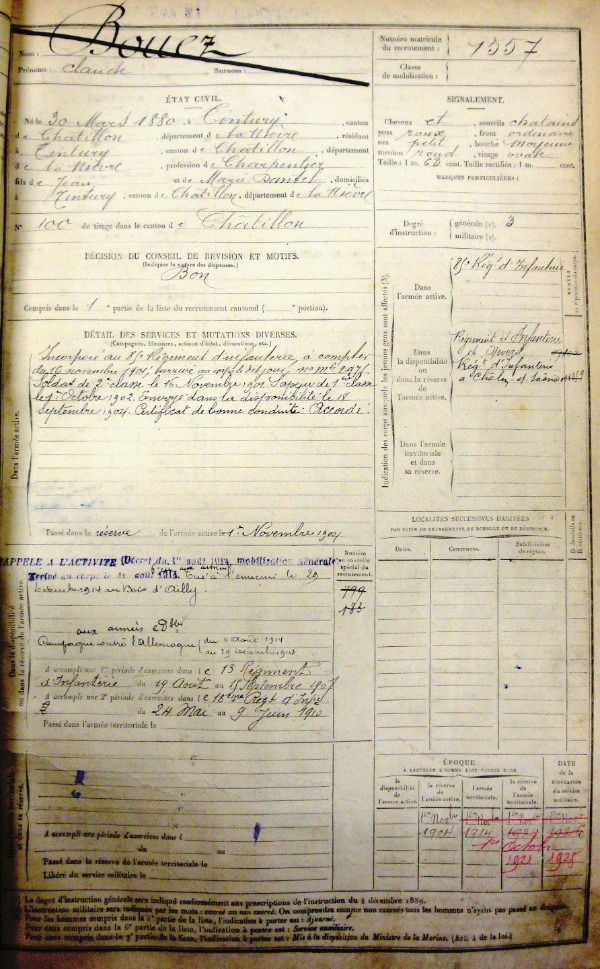 Nom : Bouez
Prénoms : Claude Surnom :
Numéro matricule du recrutement : 1357
Classe de mobilisation :
ÉTAT CIVIL.
Né le 30 Mars 1880, à Tintury, canton
de Châtillon, département de la Nièvre, résidant
à Tintury, canton de Châtillon, département
de la Nièvre, profession de Charpentier
fils de Jean et de Marie, domiciliés
à Tintury, canton de Châtillon, département de la Nièvre
N° 100 de tirage dans le canton de Châtillon
SIGNALEMENT.
Cheveux et sourcils chatains
yeux roux, front ordinaire
nez petit, bouche moyenne
menton rond, visage ovale
Taille : 1 m. 63 cent. Taille rectifiée : 1 m. cent.
MARQUES PARTICULIÈRES :
Degré d'instruction : générale (1). 3
militaire (2).
DÉCISION DU CONSEIL DE REVISION ET MOTIFS.
(Indiquer la nature des dispenses.)
Bon
Compris dans la 1e partie de la liste du recrutement cantonal ( portion).
DÉTAIL DES SERVICES ET MUTATIONS DIVERSES.
(Campagnes, blessures, actions d'éclat, décorations, etc.)
Dans l'armée active.
Incorporé au 85e Régiment d'infanterie, à compter
du 16 novembre 1901, arrivé au corps le dit jour, no mle 1975.
Soldat de 2e classe le 16 Novembre 1901. Sapeur de 1ère classe
le 1er Octobre 1902. Envoyé dans la disponibilité le 18
Septembre 1904. Certificat de bonne conduite : Accordé.
Passé dans la réserve de l'armée active le 1er Novembre 1904
Indication des corps auxquels les jeunes gens sont affectés (3).
Dans l'armée active.
85e Régt d'Infanterie
Dans la disponibilité ou dans la réserve de l'armée active.
Régiment d'Infanterie
de Nevers
Régt d'Infanterie
à Chalon s/ Saône
Dans l'armée territoriale et dans sa réserve.
LOCALITÉS SUCCESSIVES HABITÉES
PAR SUITE DE CHANGEMENTS DE DOMICILE OU DE RÉSIDENCE.
Dates. Communes. Subdivisions de région.
Dans la disponibilité ou dans la réserve de l'armée active.
RAPPELÉ A L'ACTIVITÉ (Décret du 1er août 1914, mobilisation générale)
Arrivé au corps le août 1914. aux armées Tué à l'ennemi le 29
Décembre 1914 au Bois d'Ailly.
Numéro au contrôle spécial du recrutement.
799
183
aux armées
Campagne contre l'Allemagne du 4 août 1914
au 29 décembre 1914
A accompli une 1re période d'exercices dans le 13 Régiment
d'Infanterie du 19 Août au 15 Septembre 1907
A accompli une 2e période d'exercices dans le Régt d'Infie
du 24 Mai au 9 Juin 1910
Passé dans l'armée territoriale le
A accompli une période d'exercices dans l
du au
Passé dans la réserve de l'armée territoriale le
Libéré du service militaire le
ÉPOQUE
À LAQUELLE L'HOMME DOIT PASSER DANS
la disponibilité de l'armée active.
la réserve de l'armée active.
l'armée territoriale.
la réserve de l'armée territoriale.
DATE de la libération du service militaire.
1er Novbre 1er Novbre 1er Novbre
1904 1914
1er Octobre
1921 1925
(1) Le degré d'instruction générale sera indiqué conformément aux prescriptions de l'instruction du 4 décembre 1889.
(2) L'instruction militaire sera indiquée par les mots : exercé ou non exercé. On comprendra comme non exercés tous les hommes n'ayant pas passé au drapeau.
(3) Pour les hommes compris dans la 5e partie de la liste, l'indication à porter est : Ajourné.
Pour ceux compris dans la 6e partie de la liste, l'indication à porter est : Service auxiliaire.
Pour ceux compris dans la 7e partie de la liste, l'indication à porter est : Mis à la disposition du Ministre de la Marine. (Art. 4 de la loi.)